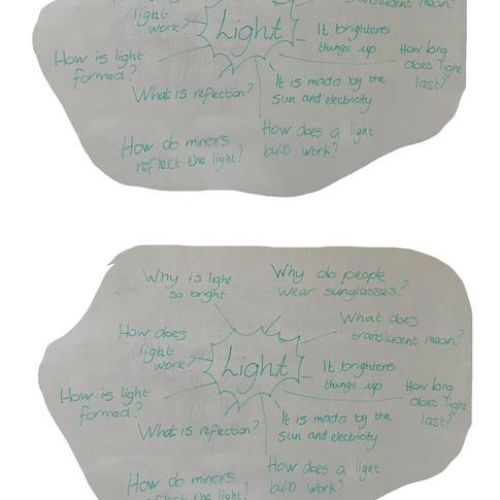 light
work?
Light
It brightens
things up
translucent mean?
How is light
formed?
How long
does light
last?
What is reflection?
It is made by the
sun and electricity
How do mirrors
reflect the light?
How does a light
bulb work?
Why is light
so bright
Why do people
wear sunglasses?
What does
translucent mean?
How does
light
work?
Light
It brightens
things up
How is light
formed?
How long
does light
last?
What is reflection?
It is made by the
sun and electricity
How do mirrors
reflect the light?
How does a light
bulb work?